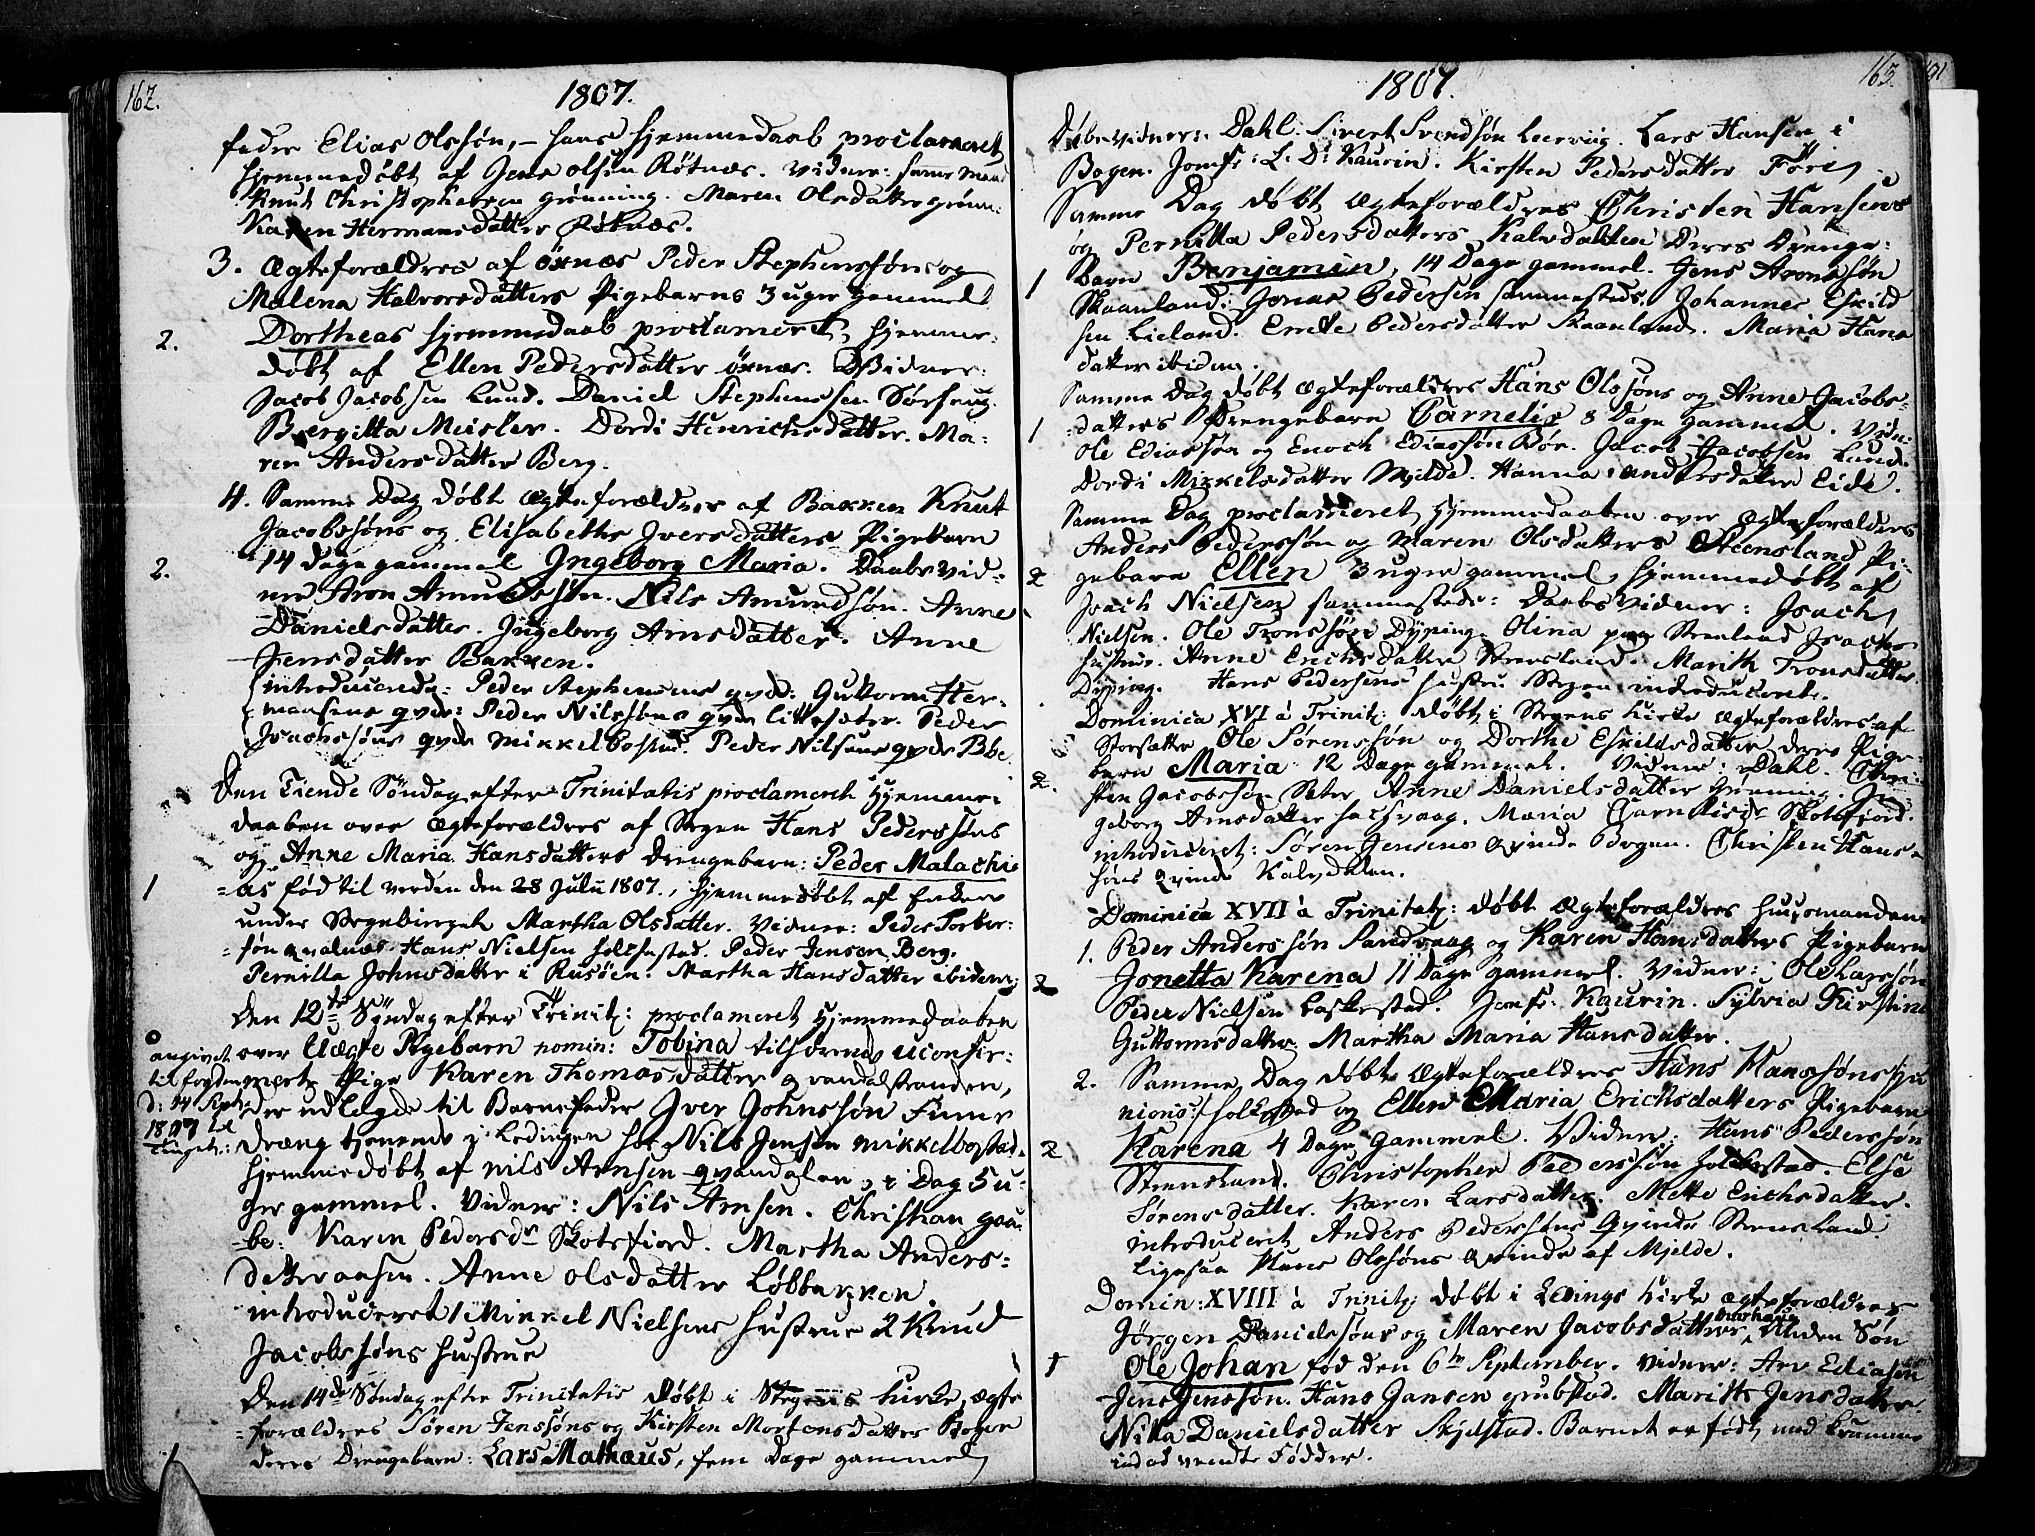 162.
1807.
fader Elias Olssøn, – hans hjemmedaab proclameret
hjemmedøbt af Jens Olsen Røtnæs. Vidner: samme Mand
Knud Christophersen Grønning. Maren Olsdatter Grønn:
Karen Hermansdatter Røtnæs.
3. Ægteforældres af Öxnæs Peder Stephenssøns og
Malena Halvorsdatters Pigebarns 3 uger gammel
2. Dortheas hjemmedaab proclameret, hjemme-
døbt af Ellen Pedersdatter Öxnæs. Vidner:
Jacob Jacobsen Lund. Daniel Stephensen
Bergitta Meisler. Dordi Hinrichsdatter. Ma-
ren Andersdatter Berg.
4. Samme Dag døbt Ægteforældres af Bakken Knut
Jacobssøns og Elisabeths Iversdatters Pigebarn
2. 14 Dage gammel Ingeborg Maria. Daabsvid-
ner Aron Amundssøn. Nils Amundsøn. Anne
Danielsdatter. Ingeborg Arnsdatter. Anne
Jensdatter Bakken.
introducerede: Peder Stephensens qvde: Guttorm Her-
mansens qvde: Peder Nilssøns qvde Peder
Isachssøns qvde Mikkelbostad. Peder Nilsens qvde Bøe.
Den Tiende Søndag efter Trinitatis proclameret Hjemme-
daaben over Ægteforældres af Stegen Hans Pederssøns
og Anne Maria Hansdatters Drengebarn: Peder Malachi-
1 as fød til verden den 28 Julii 1807, hjemmedøbt af Enken
under Stegebierget Martha Olsdatter. Vidner: Peder Torber-
søn Hans Nielsen Holkestad. Peder Jensen Berg.
Pernilla Johnsdatter i Rusøen. Martha Hansdatter ibidem
Den 12te Søndag efter Trinit: proclameret Hjemmedaaben
over Uægte Pigebarn nomin: Tobina tilhørende uconfir-
angivet
til fogden
d: 14 Sept:
1807
Tinget:
merte Pige Karen Thomasdatter Qvandalstranden,
der udlægde til Barnefader Iver Johnssøn
dræng tjenende i Lødingen hos Nils Jensen Mikkelbostad.
hjemmedøbt af Nils Arnsen Qvandalen, i Dag 5 u-
ger gammel. Vidner: Nils Arnsen. Christian Gaa-
be. Karen Pedersdr Skotsfiord. Martha Anders-
datter Aasen. Anne Olsdatter Løbbakken.
introduceret 1 Mikkel Nielsens Hustrue 2 Knud
Jacobssøns Hustrue
Den 14de Søndag efter Trinitatis døbt i Stegens Kirke, Ægte
forældres Søren Jenssøns og Kirsten Mortensdatters Bogen
1 deres Drengebarn: Lars Mathæus, fem Dage gammel
163
1807.
Døbevidner: Dahl. Sivert Svendsøn Leervig. Lars Hansen i
Bogen. Jomfr: L. D: Kaurin. Kirsten Pedersdatter Före
Samme Dag døbt Ægteforældres Christen Hansens
og Pernilla Pedersdatters Kalvdalen Deres Drenge-
1 Barn Benjamin, 14 Dage gammel. Jens Aronssøn
Skaanland. Jonas Pedersen sammesteds. Johannes Eskild
sen Lieland. Pedersdatter Skaanland. Maria Hans
datter ibidem.
Samme Dag døbt Ægteforældres Hans Olssøns og Anne Jacobs-
1 datters Drengebarn Cornelis 8 Dage gammel. Vidn:
Ole Ediassøn og Enoch Ediassøn Bøe. Jacob Jacobsen Lund.
Dordi Mikkelsdatter Mjelde. Hanna Andersdatter Eide.
Samme Dag proclameret Hjemmedaaben over Ægteforældres
Anders Pederssøn og Maren Olsdatters Steensland Pi-
2 gebarn Ellen 3 uger gammel, hjemmedøbt af
Isach Nielsen sammesteds: Daabs Vidner: Isach
Nielsen. Ole Tronssøn Dyping. Olina paa Stensland Isachs
Hustrue. Anne Erichsdatter Stensland. Marith Tronsdatter
Dyping. Hans Pedersens Hustru Stegen introduceret.
Dominica XVI â Trinit: døbt i Stegens Kirke Ægteforældres af
Storsætter Ole Sørenssøn og Dorthe Eskildsdatter deres Pige-
2. barn Maria 12 Dage gammel. Vidner: Dahl. Chri-
sten Jacobssøn Sæter. Anne Danielsdatter Grønning. In-
geborg Arnsdatter Maria Skotsfjord.
introduceret: Søren Jensens Qvinde Bogen. Christen Hans-
søns Qvinde Kalvdalen.
Dominica XVII â Trinitat: døbt Ægteforældres Huusmandens
1. Peder Anderssøn Sandvaag og Karen Hansdatters Pigebarn
2 Jonetta Karena 11 Dage gammel. Vidner: Ole Larssøn
Peder Nielsen Laskestad. Jomfr: Kaurin. Sylvia Kirstine
Guttormsdatter. Martha Maria Hansdatter.
2. Samme Dag døbt Ægteforældres Hans Hanssøns /ju
nioris/ Holkestad og Ellen Maria Erichsdatters Pigebarn
2 Karena 4 Dage gammel. Vidner: Hans Pederssøn
Stensland. Christopher Pederssøn Holkestad. Else
Sørensdatter. Karen Larsdatter. Mette Erichsdatter.
introduceret Anders Pederssøns Qvinde Stensland
ligesaa Hans Olssøns Qvinde af Mjelde.
Domin: XVIII â Trinit: døbt i Lødings Kirke Ægteforældres
Jørgen Danielssøns og Maren Jacobsdatters Liden Søn
1 Ole Johan fød den 6te September. Vidner: Edissøn
Jens Jenssøn. Hans Jansen Grubstad. Marith Jensdatter
Nilla Danielsdatter Skjelstad. Barnet er født med krumme
indad vendte Fødder.